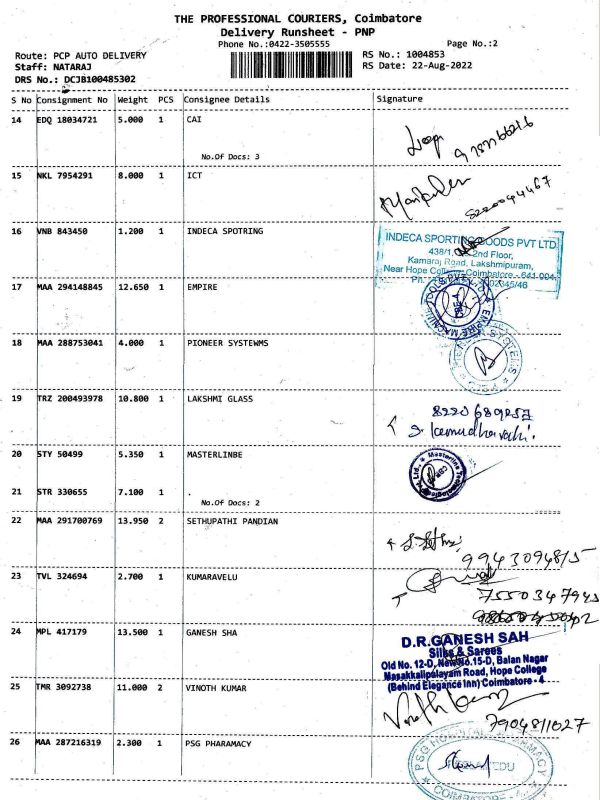 THE PROFESSIONAL COURIERS, Coimbatore
Delivery Runsheet - PNP
Phone No.:0422-3505555
Page No.:2
Route: PCP AUTO DELIVERY
RS No.: 1004853
Staff: NATARAJ
RS Date: 22-Aug-2022
DRS No.: DCJB100485302
S No Consignment No Weight PCS Consignee Details Signature
14 EDQ 18034721 5.000 1 CAI
No.Of Docs: 3
15 NKL 7954291 8.000 1 ICT
16 VNB 843450 1.200 1 INDECA SPOTRING
INDECA SPORTING GOODS PVT LTD
2nd Floor,
Kamaraj Road, Lakshmipuram,
Near Hope College Coimbatore - 641 004
17 MAA 294148845 12.650 1 EMPIRE
18 MAA 288753041 4.000 1 PIONEER SYSTEWMS
19 TRZ 200493978 10.800 1 LAKSHMI GLASS
20 STY 50499 5.350 1 MASTERLINBE
21 STR 330655 7.100 1 .
No.Of Docs: 2
22 MAA 291700769 13.950 2 SETHUPATHI PANDIAN
9943094815
23 TVL 324694 2.700 1 KUMARAVELU
7550347945
24 MPL 417179 13.500 1 GANESH SHA
D.R.GANESH SAH
Silks & Sarees
Old No. 12-D, New No.15-D, Balan Nagar
Masakkalipalayam Road, Hope College
(Behind Elegance Inn) Coimbatore - 4
25 TMR 3092738 11.000 2 VINOTH KUMAR
7904811027
26 MAA 287216319 2.300 1 PSG PHARAMACY